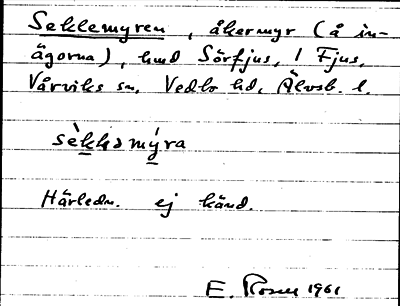 Sekkemyren, åkermyr (å in-
ägorna), hmd Sörfjus, 1 Fjus,
Vårviks sn, Vedbo hd, Älvsb. l.
sèkkəmýra
Härledn. ej känd.
E. Rosén 1961